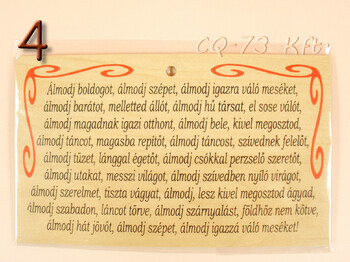 4
CQ-73 Kft
Álmodj boldogot, álmodj szépet, álmodj igazra váló meséket,
álmodj barátot, melletted állót, álmodj hű társat, el sose válót,
álmodj magadnak igazi otthont, álmodj bele, kivel megosztod,
álmodj táncot, magasba repítőt, álmodj táncost, szívednek felelőt,
álmodj tüzet, lánggal égetőt, álmodj csókkal perzselő szeretőt,
álmodj utakat, messzi világot, álmodj szívedben nyíló virágot,
álmodj szerelmet, tiszta vágyat, álmodj, lesz kivel megosztod ágyad,
álmodj szabadon, láncot törve, álmodj szárnyalást, földhöz nem kötve,
álmodj hát jövőt, álmodj szépet, álmodj igazzá váló meséket!